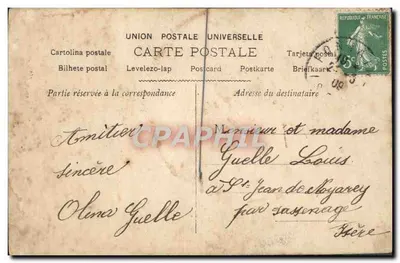 UNION POSTALE UNIVERSELLE
Cartolina postale CARTE POSTALE Tarjeta postal
Bilhete postal Levelezo-lap Postcard Postkarte Briefkaart
Partie réservée à la correspondance
Adresse du destinataire
REPUBLIQUE FRANÇAISE
5c
POSTES
Amitier
sincère
Olina Guelle
Monsieur et madame
Guelle Louis
a St Jean de Moyarey
par sassenage
Isère
CPAPHIL